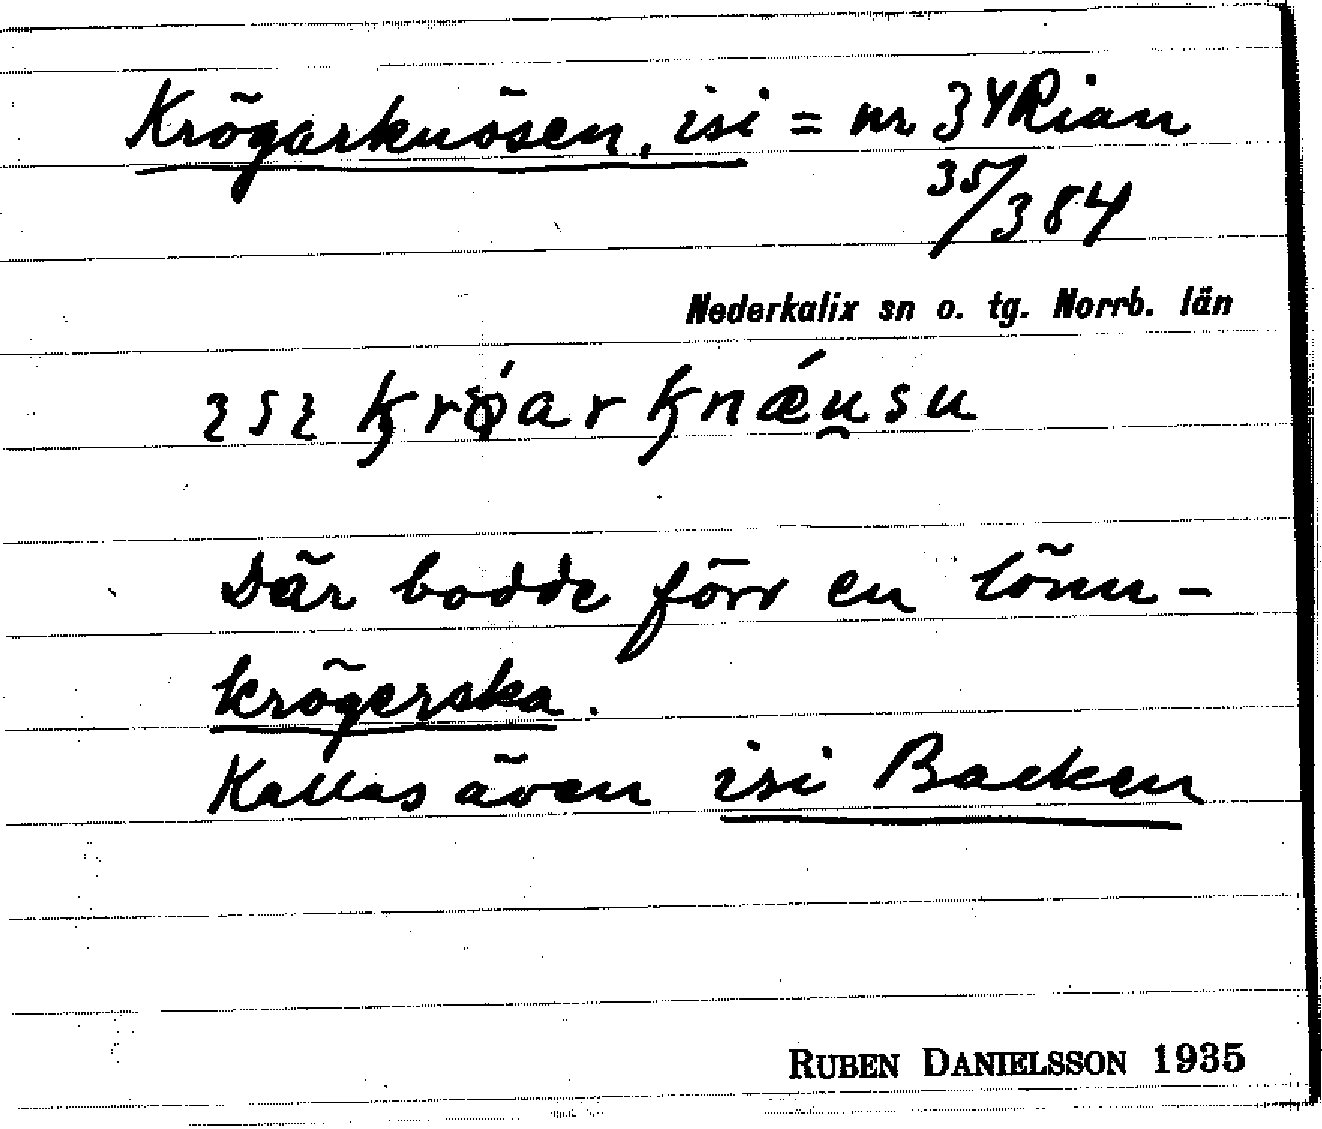 Krögarknösen, isi = nr 34 Rian
35/384
Nederkalix sn o. tg. Norrb. län
ɩsɩ kró̜arknǽu̯su
Där bodde förr en lönn-
krögerska.
Kallas även isi Backen
RUBEN DANIELSSON 1935